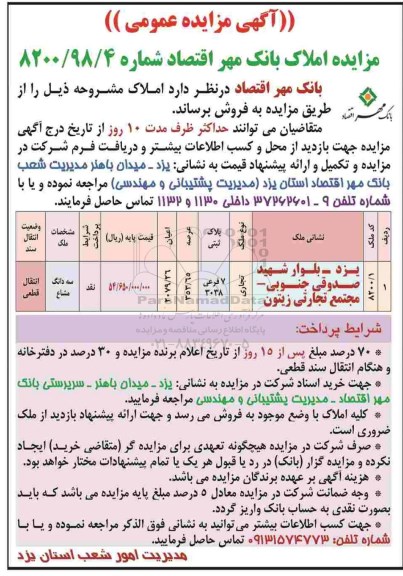 ((آگهی مزایده عمومی))
مزایده املاک بانک مهر اقتصاد شماره ۸۲۰۰/۹۸/۴
بانک مهر اقتصاد درنظر دارد املاک مشروحه ذیل را از
طریق مزایده به فروش برساند.
بانک مهر اقتصاد
متقاضیان می توانند حداکثر ظرف مدت ۱۰ روز از تاریخ درج آگهی
مزایده جهت بازدید از محل و کسب اطلاعات بیشتر و دریافت فرم شرکت در
مزایده و تکمیل و ارائه پیشنهاد قیمت به نشانی: یزد ـ میدان باهنر مدیریت شعب
بانک مهر اقتصاد استان یزد (مدیریت پشتیبانی و مهندسی) مراجعه نموده و یا با
شماره تلفن ۹ ـ ۳۷۲۶۲۷۰۱ داخلی ۱۱۳۰ و ۱۱۳۲ تماس حاصل فرمایند.
ردیف کد ملک نشانی ملک نوع ملک پلاک ثبتی عرصه اعیان قیمت پایه (ریال) شرایط پرداخت مشخصات ملک وضعیت انتقال سند
۸۲۰۰/۱ یزد ـ بلوار شهید صدوقی جنوبی ـ مجتمع تجارتی زیتون تجاری ۷ فرعی ۳۰۳۸ ۵۴/۶۵۰/۰۰۰/۰۰۰ نقد سه دانگ مشاع انتقال قطعی
ParsNamadData
پایگاه اطلاع رسانی مناقصه و مزایده
۰۲۱-۸۸۳۴۹۶۷۰-۵
شرایط پرداخت:
* ۷۰ درصد مبلغ پس از ۱۵ روز از تاریخ اعلام برنده مزایده و ۳۰ درصد در دفترخانه
و هنگام انتقال سند قطعی.
* جهت خرید اسناد شرکت در مزایده به نشانی: یزد ـ میدان باهنر ـ سرپرستی بانک
مهر اقتصاد ـ مدیریت پشتیبانی و مهندسی مراجعه فرمایید.
* کلیه املاک با وضع موجود به فروش می رسد و جهت ارائه پیشنهاد بازدید از ملک
ضروری است.
* صرف شرکت در مزایده هیچگونه تعهدی برای مزایده گر (متقاضی خرید) ایجاد
نکرده و مزایده گزار (بانک) در رد یا قبول هر یک یا تمام پیشنهادات مختار خواهد بود.
* هزینه آگهی بر عهده برندگان مزایده می باشد.
* وجه ضمانت شرکت در مزایده معادل ۵ درصد مبلغ پایه مزایده می باشد که باید
بصورت نقدی به حساب بانک واریز گردد.
* جهت کسب اطلاعات بیشتر می‌توانید به نشانی فوق الذکر مراجعه نموده و یا با
شماره تلفن: ۰۹۱۳۱۵۷۴۷۷۳ تماس حاصل فرمایید.
مدیریت امور شعب استان یزد